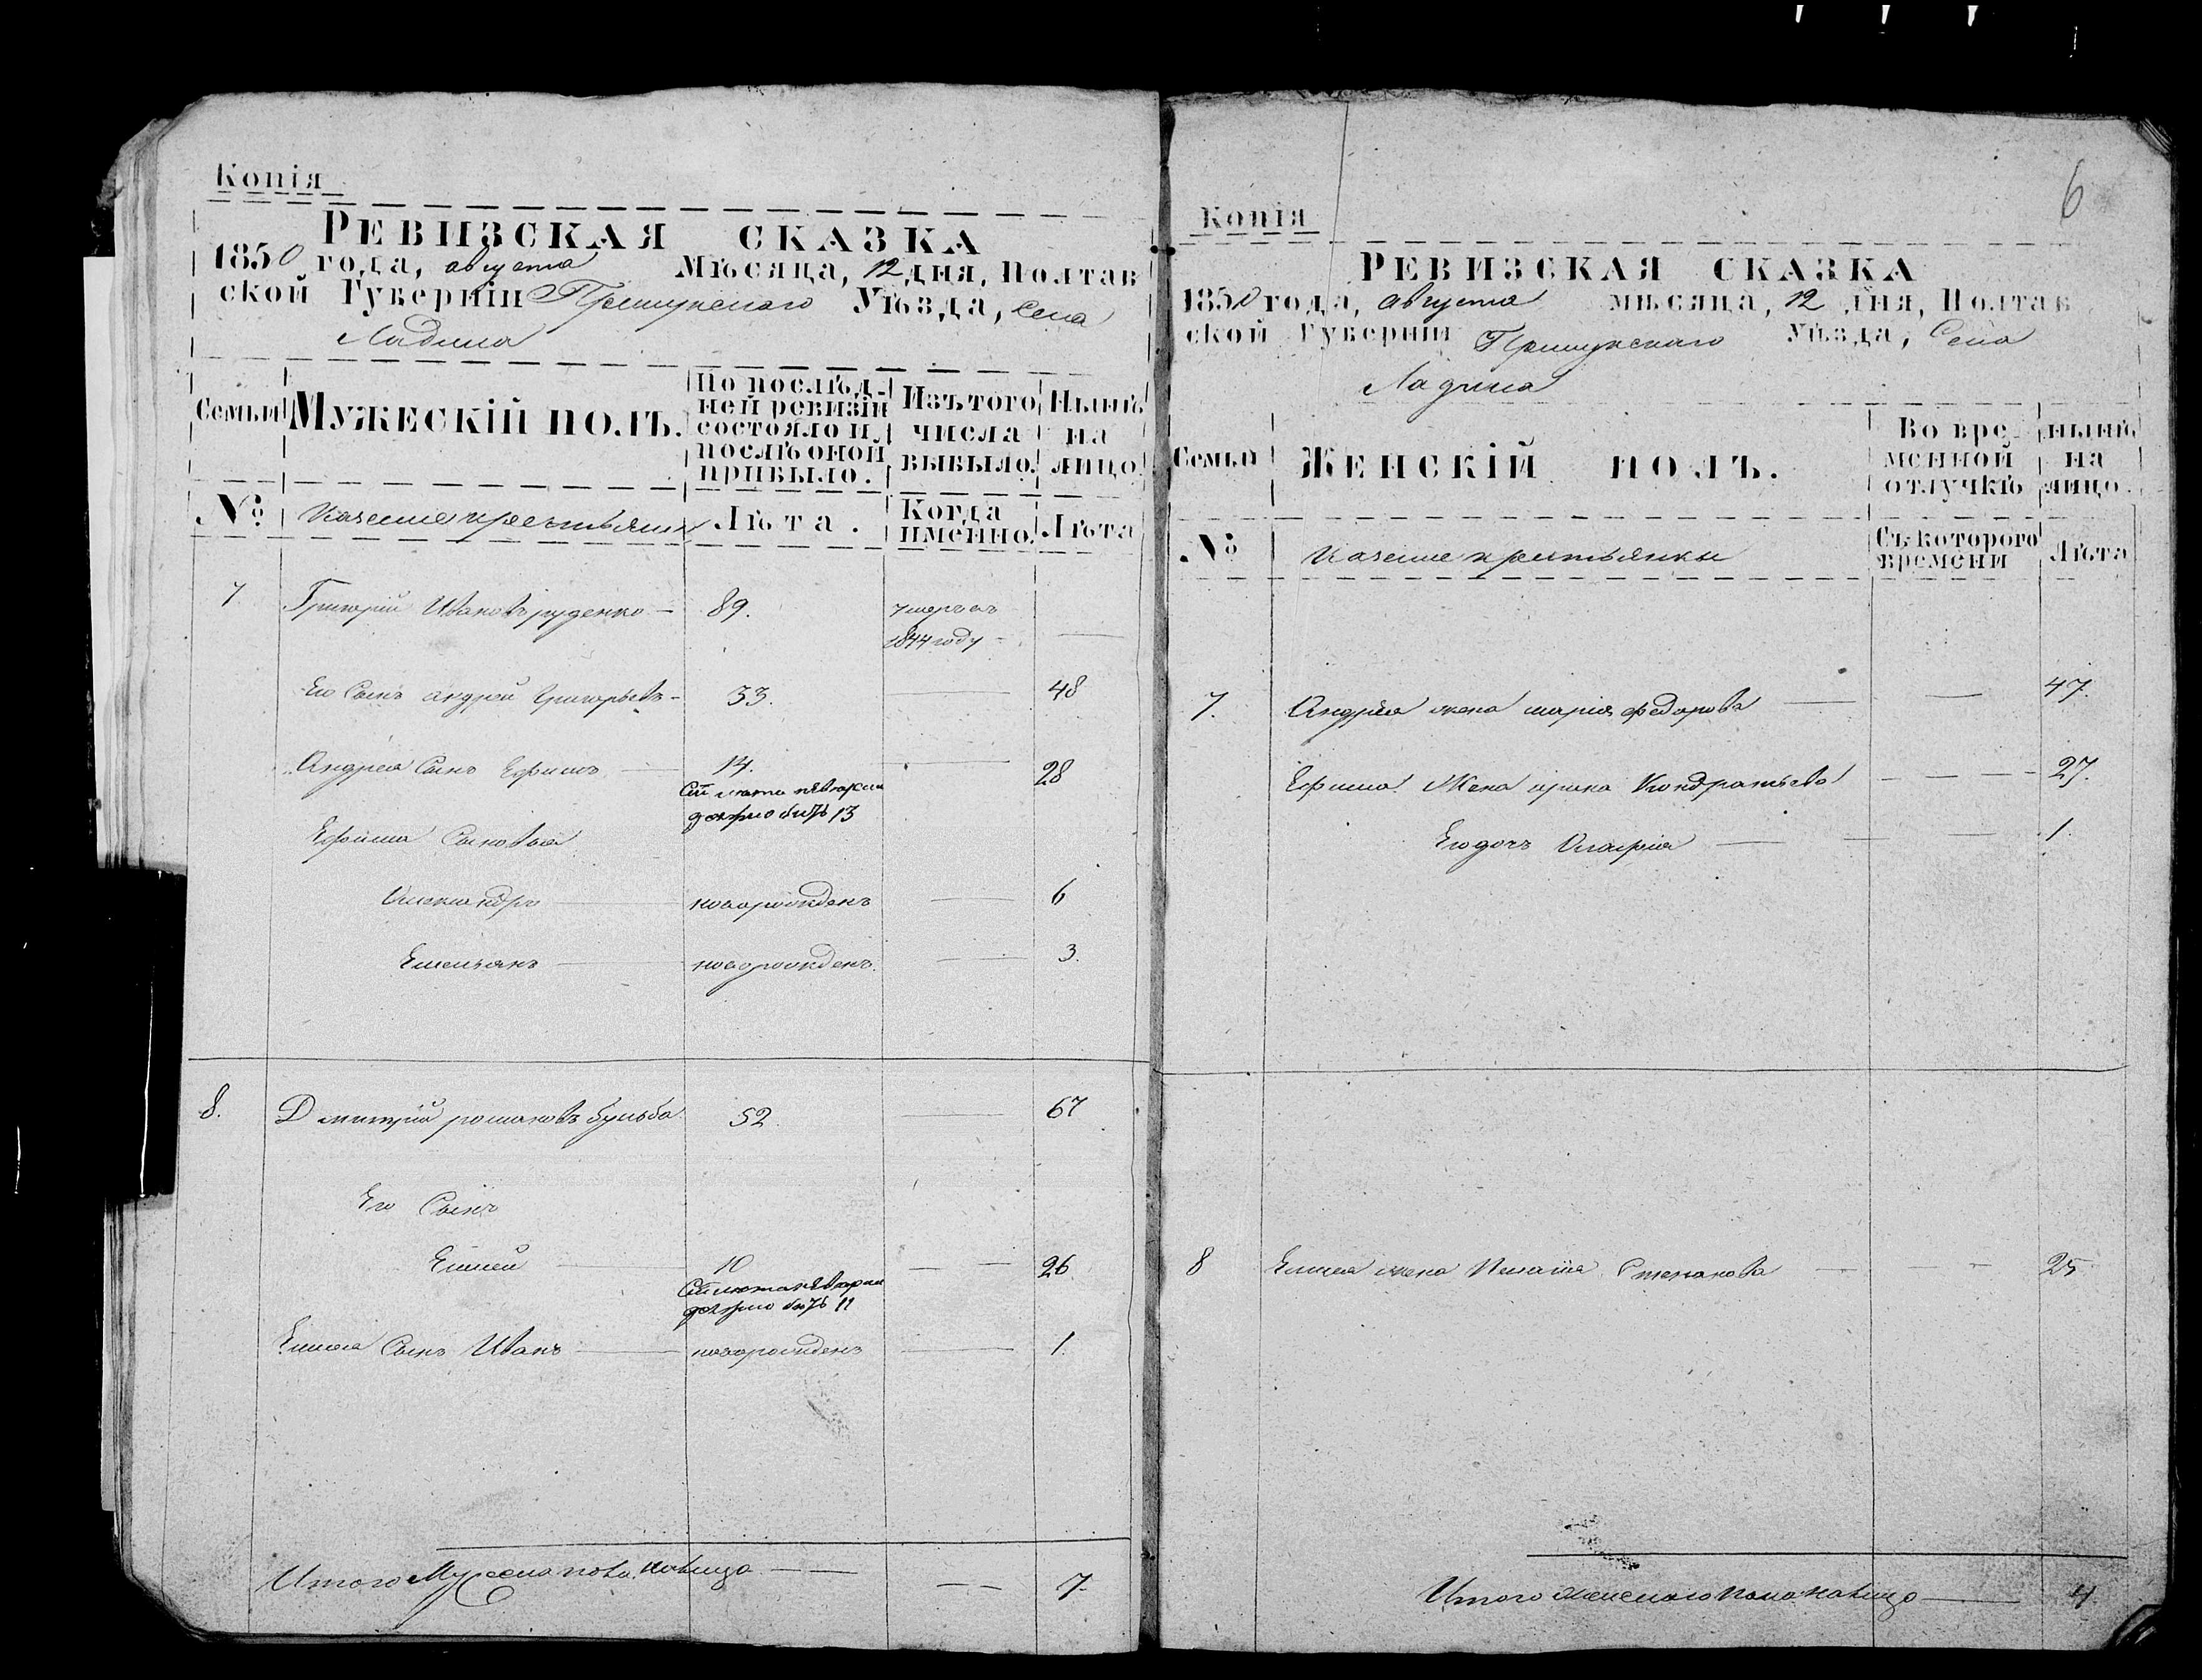 Копія
РЕВИЗСКАЯ СКАЗКА
1850 года, августа Мѣсяца, 12 дня, Полтав
ской Губерніи Прилукского Уѣзда, Села
Ладина
Семьи
МУЖЕСКІЙ ПОЛЪ.
По послѣд-
ней ревизіи
состояло и
послѣ оной
прибыло.
Изъ того
числа
выбыло.
Нынѣ
на
лицо
№
Казенные крестьяне
Лѣта.
Когда
именно.
Лѣта
7
Григорій Ивановъ руденко
89.
умеръ въ
1844 году
Его Сынъ андрей Григорьевъ
33.
48
Андрея Сынъ Ефимъ
14.
28
должно быть 13
Ефима Сыновья
Александръ
новорожденъ
6
Емельянъ
новорожденъ.
3.
8.
Дмитрій романовъ бульба
52.
67
Его Сынъ
Елисей
10
26.
должно быть 11
Елисея Сынъ Иванъ
новорожденъ
1.
Итого Мужеска пола налицо
7
6
Копія
РЕВИЗСКАЯ СКАЗКА
1850 года, августа мѣсяца, 12 дня, Полтав
ской Губерніи Прилукского Уѣзда, Села
Ладина
Семьи
ЖЕНСКІЙ ПОЛЪ.
Во вре-
менной
отлучкѣ
нынѣ
на
лицо.
№
Казенные крестьянки
Съ котораго
времени
Лѣта
7.
Андрея жена марія федорова
47.
Ефима Жена ирина Кондратьева
27.
Его дочь
1.
8
Елисея жена Пелагія Степанова
25
Итого женского пола налицо
4